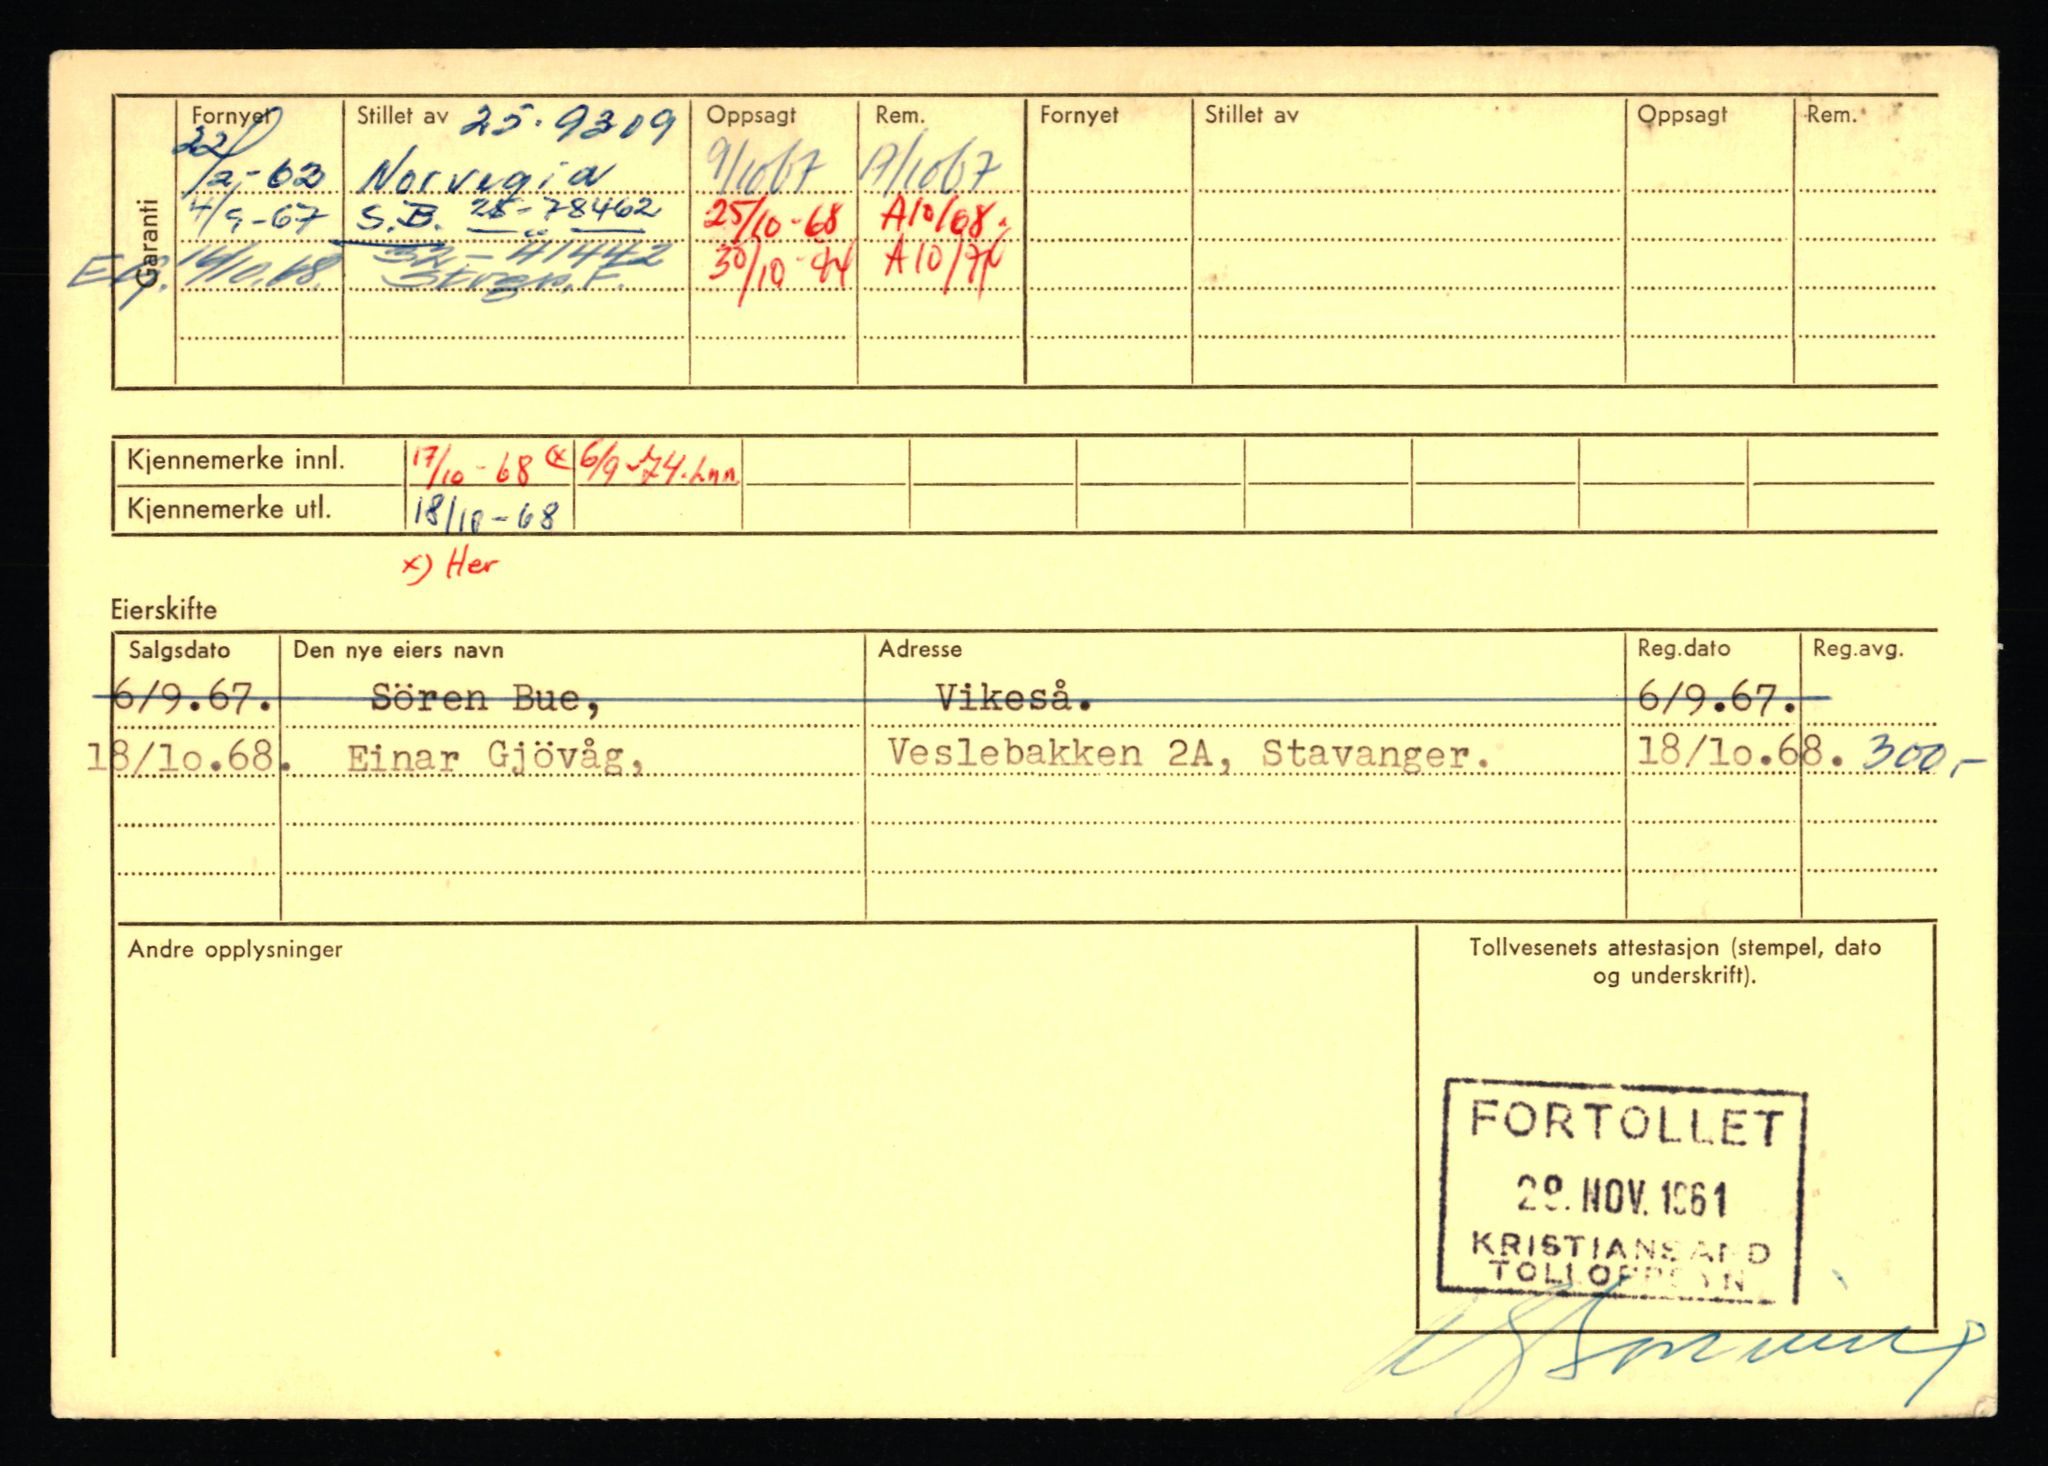 Garanti
Fornyet Stillet av 25-9309 Oppsagt Rem. Fornyet Stillet av Oppsagt Rem.
22/2-62 Norvegia 9/10 67 17/10 67
4/9-67 S.B. 28-78462 25/10-68 A10/68.
14/10.68. 32-41442 30/10-74 A10/74
Kjennemerke innl. 17/10-68 (x 6/9-74.
Kjennemerke utl. 18/10-68
x) Her
Eierskifte
Salgsdato Den nye eiers navn Adresse Reg.dato Reg.avg.
6/9.67. Sören Bue, Vikeså. 6/9.67.
18/1o.68. Einar Gjövåg, Veslebakken 2A, Stavanger. 18/1o.68. 300,-
Andre opplysninger
Tollvesenets attestasjon (stempel, dato
og underskrift).
FORTOLLET
29. NOV. 1961
KRISTIANSAND
TOLLOPPSYN